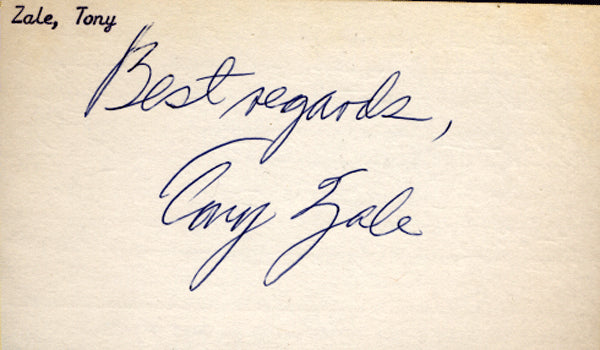 Zale, Tony
Best regards,
Tony Zale